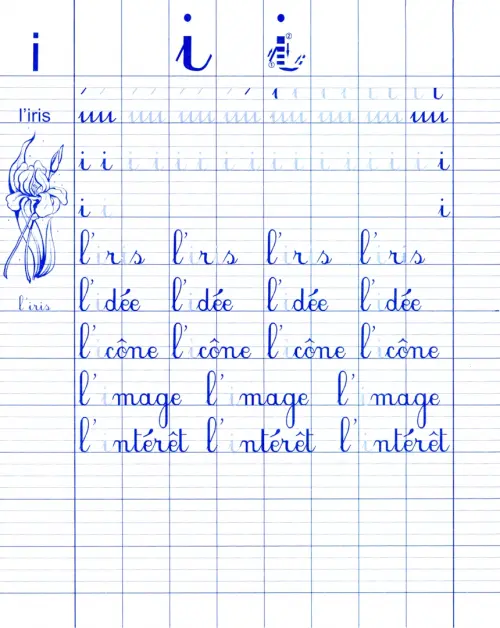 i i i
① ②
l'iris
ııı ııı ııı ııı ııı ııı ııı ııı
i i i i i i i i i i i i i i i i
i i i
l'iris l'iris l'iris l'iris
l'idée l'idée l'idée l'idée
l'iris
l'icône l'icône l'icône l'icône
l'image l'image l'image
l'intérêt l'intérêt l'intérêt